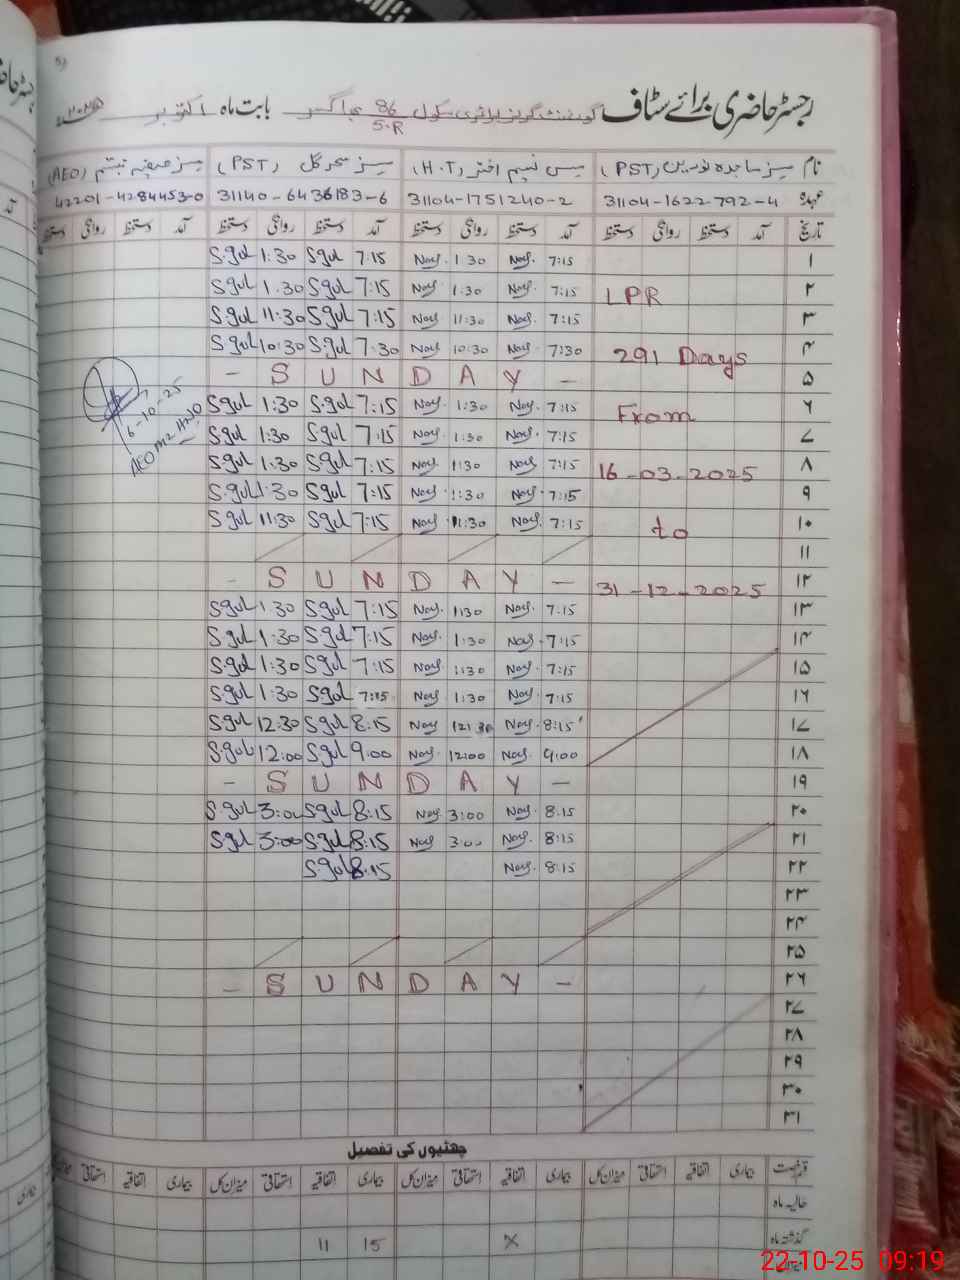 رجسٹر حاضری برائے سٹاف گورنمنٹ گرلز پرائمری سکول 86/5.R بابت ماہ اکتوبر ۲۰۲۵
نام مسز ساجدہ نورین (PST) مس نسیم اختر (H.T) مسز سحر گل (PST) (AEO)
عہدہ 31104-1622792-4 31104-1751240-2 31140-6436183-6 42201-4284453-0
تاریخ آمد دستخط روانگی دستخط آمد دستخط روانگی دستخط آمد دستخط روانگی دستخط آمد دستخط روانگی دستخط
۱ 7:15 Nas. 1:30 Nas. 7:15 S.gul 1:30 S.gul
۲ LPR 7:15 Nas. 1:30 Nas. 7:15 S.gul 1:30 S.gul
۳ 7:15 Nas. 11:30 Nas. 7:15 S.gul 11:30 S.gul
۴ 291 Days 7:30 Nas. 10:30 Nas. 7:30 S.gul 10:30 S.gul
۵ - S U N D A Y -
۶ From 7:15 Nas. 1:30 Nas. 7:15 S.gul 1:30 S.gul
۷ 7:15 Nas. 1:30 Nas. 7:15 S.gul 1:30 S.gul
۸ 16-03-2025 7:15 Nas. 1:30 Nas. 7:15 S.gul 1:30 S.gul
۹ 7:15 Nas. 1:30 Nas. 7:15 S.gul 1:30 S.gul
۱۰ to 7:15 Nas. 11:30 Nas. 7:15 S.gul 11:30 S.gul
۱۱
۱۲ 31-12-2025 - S U N D A Y -
۱۳ 7:15 Nas. 1:30 Nas. 7:15 S.gul 1:30 S.gul
۱۴ 7:15 Nas. 1:30 Nas. 7:15 S.gul 1:30 S.gul
۱۵ 7:15 Nas. 1:30 Nas. 7:15 S.gul 1:30 S.gul
۱۶ 7:15 Nas. 1:30 Nas. 7:15 S.gul 1:30 S.gul
۱۷ 8:15 Nas. 12:30 Nas. 8:15 S.gul 12:30 S.gul
۱۸ 9:00 Nas. 12:00 Nas. 9:00 S.gul 12:00 S.gul
۱۹ - S U N D A Y -
۲۰ 8:15 Nas. 3:00 Nas. 8:15 S.gul 3:00 S.gul
۲۱ 8:15 Nas. 3:00 Nas. 8:15 S.gul 3:00 S.gul
۲۲ 8:15 Nas. 8:15 S.gul
۲۳
۲۴
۲۵
۲۶ - S U N D A Y -
۲۷
۲۸
۲۹
۳۰
۳۱
6-10-25
AEO
چھٹیوں کی تفصیل
قسم رخصت بیماری اتفاقیہ استحقاقی میزان کل بیماری اتفاقیہ استحقاقی میزان کل بیماری اتفاقیہ استحقاقی میزان کل بیماری اتفاقیہ استحقاقی
حالیہ ماہ
گذشتہ ماہ X 15 11
22-10-25 09:19